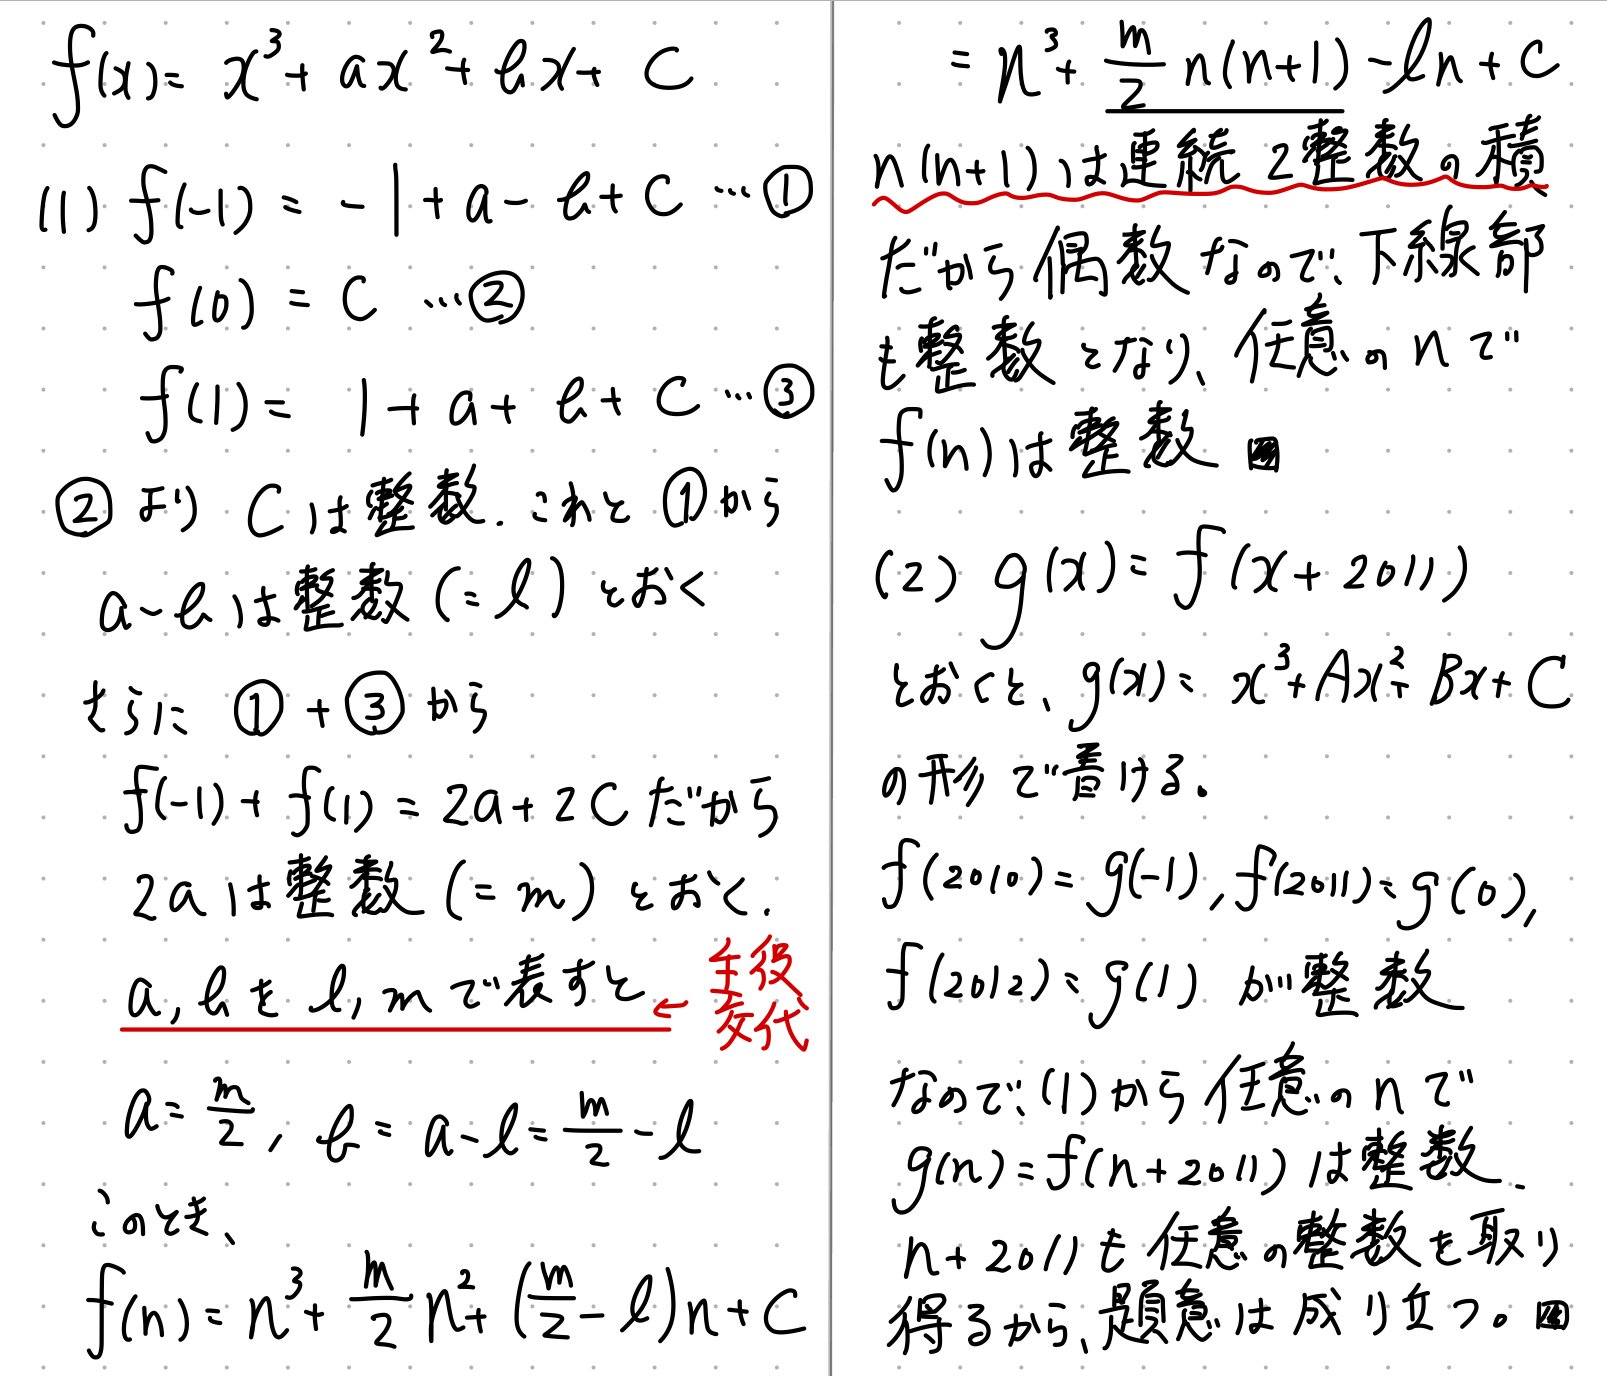 f(x) = x³ + ax² + bx + c
(1) f(-1) = -1 + a - b + c …①
f(0) = c …②
f(1) = 1 + a + b + c …③
②より cは整数. これと①から
a-bは整数(=l)とおく
さらに ①+③から
f(-1) + f(1) = 2a + 2cだから
2aは整数(=m)とおく.
a, bをl, mで表すと ← 主役
交代
a = m/2, b = a-l = m/2 - l
このとき、
f(n) = n³ + m/2 n² + (m/2 - l)n + c
= n³ + m/2 n(n+1) - ln + c
n(n+1)は連続2整数の積
だから偶数なので、下線部
も整数となり、任意のnで
f(n)は整数
(2) g(x) = f(x+2011)
とおくと、g(x) = x³ + Ax² + Bx + C
の形で書ける.
f(2010) = g(-1), f(2011) = g(0),
f(2012) = g(1) が整数
なので、(1)から任意のnで
g(n) = f(n+2011)は整数.
n+2011も任意の整数を取り
得るから、題意は成り立つ。